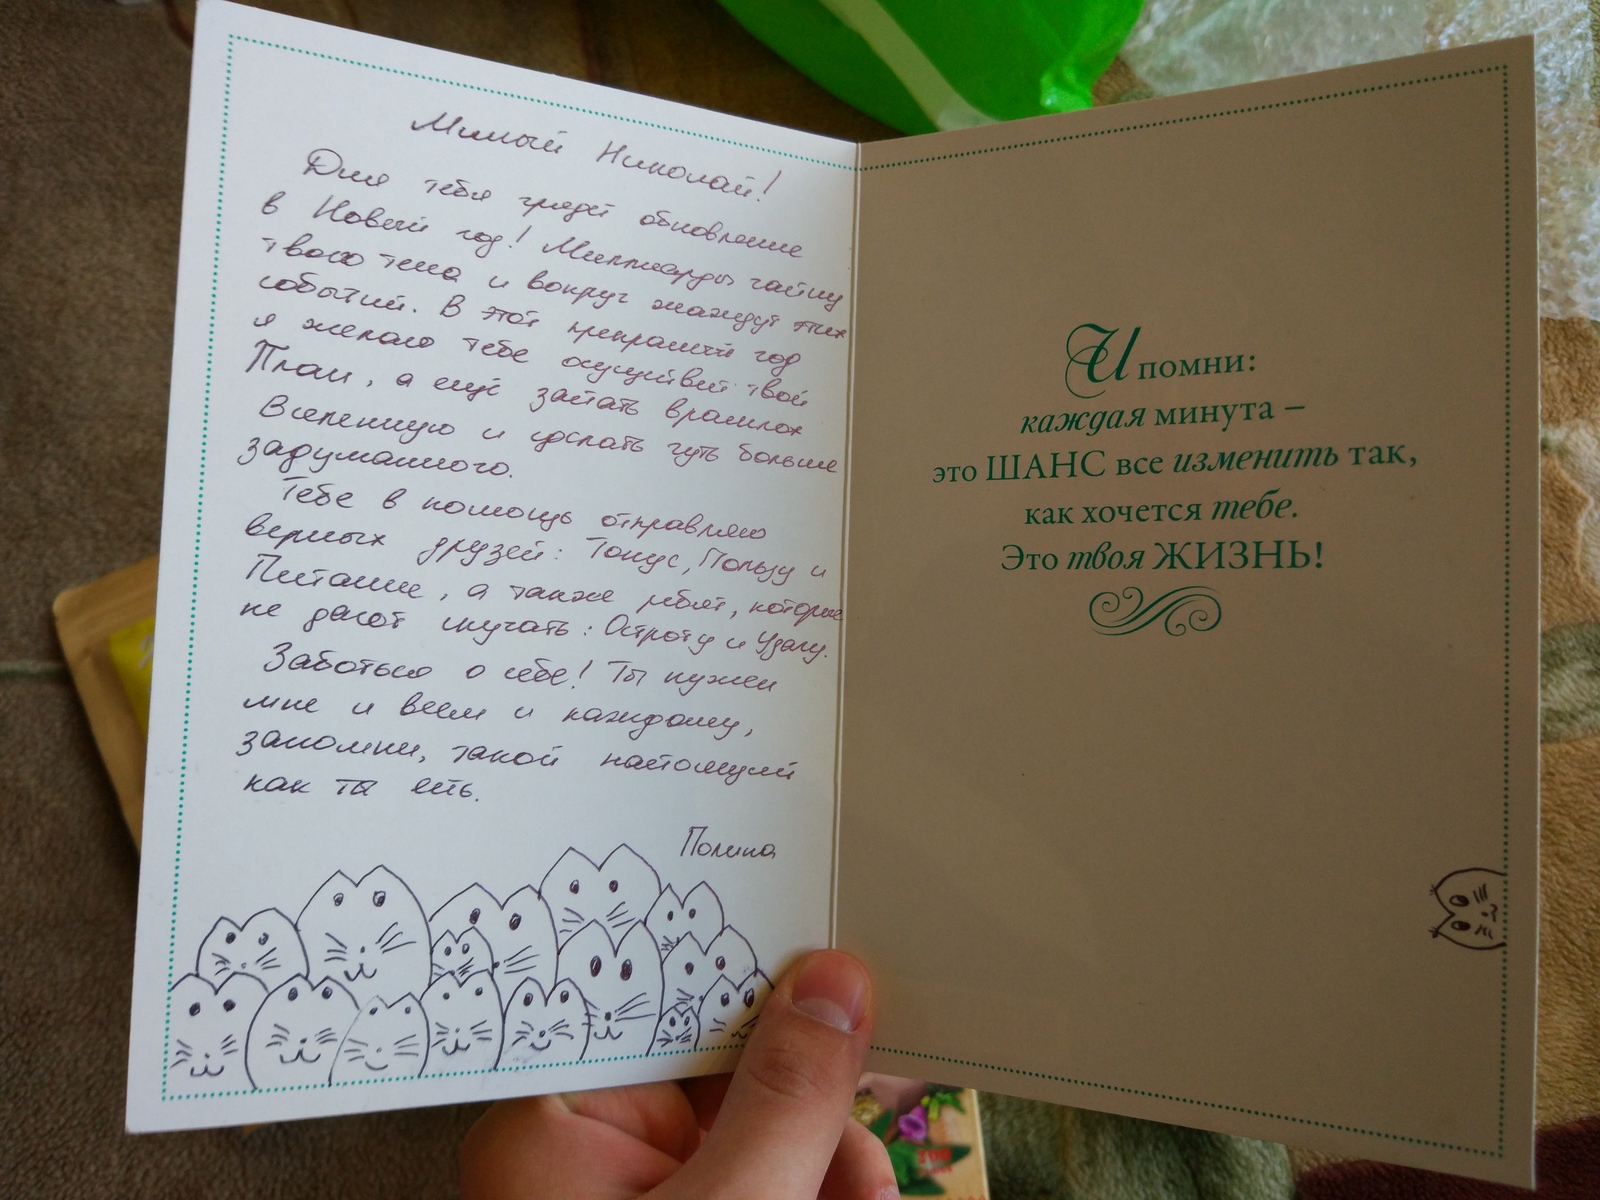 Милый Николай!
Для тебя грядет обновление
в Новый год! Миллиарды частиц
твоего тела и вокруг жаждут этих
событий. В этот прекрасный год
я желаю тебе осуществить твой
План, а ещё застать врасплох
Вселенную и сделать чуть больше
задуманного.
Тебе в помощь отправляю
верных друзей: Тонус, Пользу и
Питание, а также ребят, которые
не дают скучать: Остроту и Удачу.
Заботься о себе! Ты нужен
мне и всем и каждому,
запомни, такой настоящий
как ты есть.
Полина
И помни:
каждая минута –
это ШАНС все изменить так,
как хочется тебе.
Это твоя ЖИЗНЬ!
100